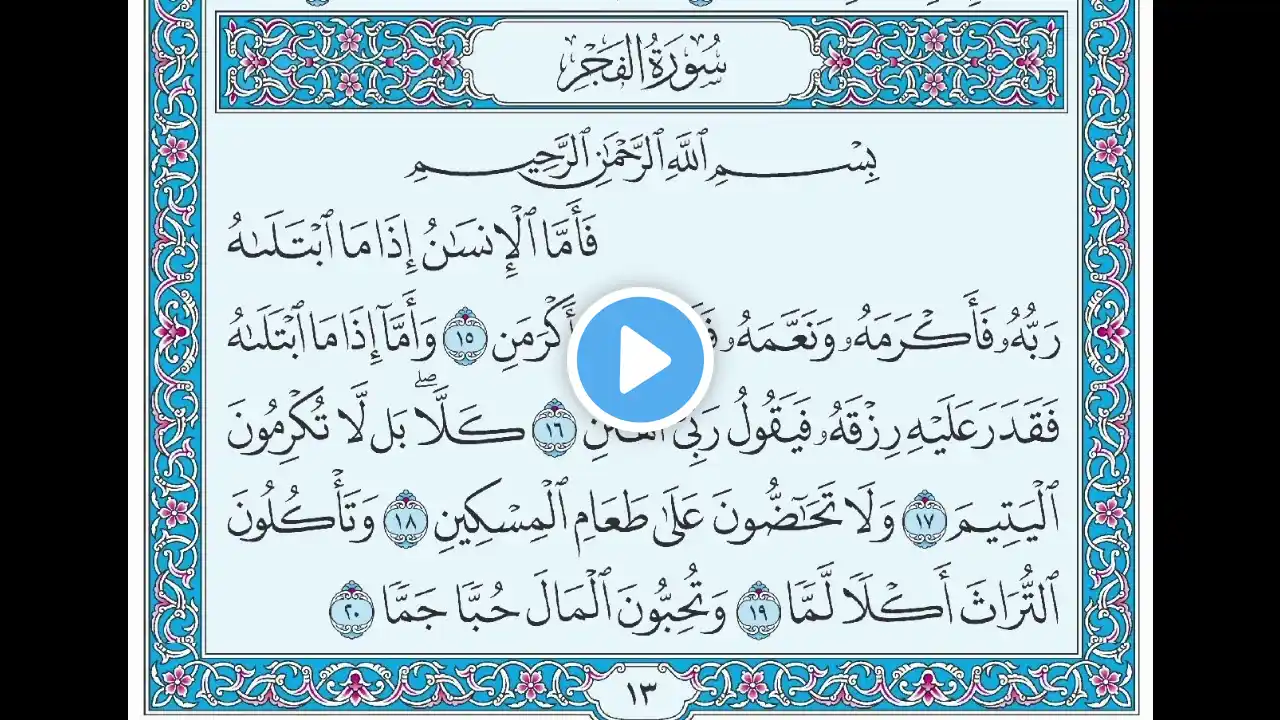 سُورَةُ الفَجْرِ
بِسْمِ ٱللَّهِ ٱلرَّحْمَٰنِ ٱلرَّحِيمِ
فَأَمَّا ٱلْإِنسَٰنُ إِذَا مَا ٱبْتَلَىٰهُ
رَبُّهُۥ فَأَكْرَمَهُۥ وَنَعَّمَهُۥ أَكْرَمَنِ ١٥ وَأَمَّآ إِذَا مَا ٱبْتَلَىٰهُ
فَقَدَرَ عَلَيْهِ رِزْقَهُۥ فَيَقُولُ رَبِّىٓ ١٦ كَلَّا ۖ بَل لَّا تُكْرِمُونَ
ٱلْيَتِيمَ ١٧ وَلَا تَحَٰٓضُّونَ عَلَىٰ طَعَامِ ٱلْمِسْكِينِ ١٨ وَتَأْكُلُونَ
ٱلتُّرَاثَ أَكْلًا لَّمًّا ١٩ وَتُحِبُّونَ ٱلْمَالَ حُبًّا جَمًّا ٢٠
١٣